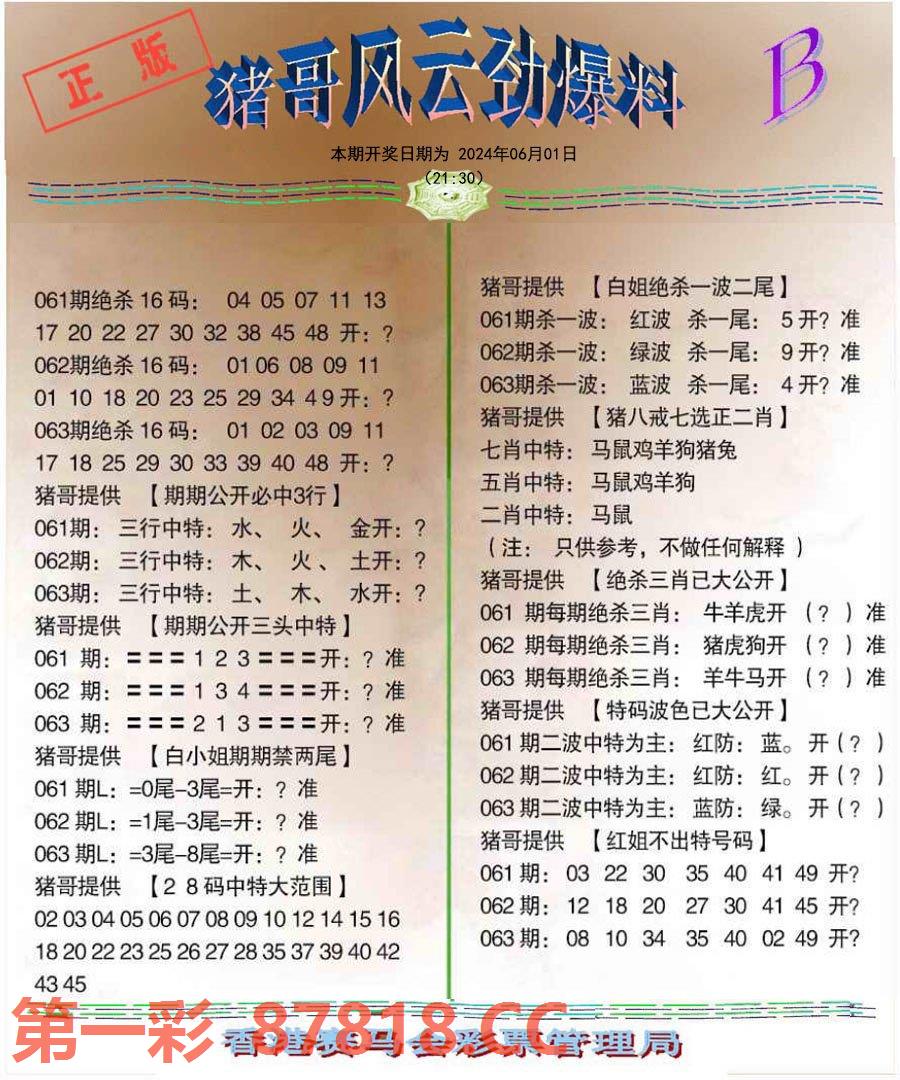 正版
猪哥风云劲爆料
B
本期开奖日期为 2024年06月01日
(21:30)
061期绝杀16码： 04 05 07 11 13
17 20 22 27 30 32 38 45 48 开：?
062期绝杀16码： 01 06 08 09 11
01 10 18 20 23 25 29 34 4 9 开：?
063期绝杀16码： 01 02 03 09 11
17 18 25 29 30 33 39 40 48 开：?
猪哥提供 【期期公开必中3行】
061期： 三行中特： 水、 火、 金开：?
062期： 三行中特： 木、 火、 土开：?
063期： 三行中特： 土、 木、 水开：?
猪哥提供 【期期公开三头中特】
061 期：〓〓〓1 2 3〓〓〓开：? 准
062 期：〓〓〓1 3 4〓〓〓开：? 准
063 期：〓〓〓2 1 3〓〓〓开：? 准
猪哥提供 【白小姐期期禁两尾】
061 期L：=0尾-3尾=开：? 准
062 期L：=1尾-3尾=开：? 准
063 期L：=3尾-8尾=开：? 准
猪哥提供 【2 8 码中特大范围】
02 03 04 05 06 07 08 09 10 12 14 15 16
18 20 22 23 25 26 27 28 35 37 39 40 42
43 45
猪哥提供 【白姐绝杀一波二尾】
061期杀一波： 红波 杀一尾： 5 开? 准
062期杀一波： 绿波 杀一尾： 9 开? 准
063期杀一波： 蓝波 杀一尾： 4 开? 准
猪哥提供 【猪八戒七选正二肖】
七肖中特： 马鼠鸡羊狗猪兔
五肖中特： 马鼠鸡羊狗
二肖中特： 马鼠
（注： 只供参考，不做任何解释 ）
猪哥提供 【绝杀三肖已大公开】
061 期每期绝杀三肖： 牛羊虎开 （?）准
062 期每期绝杀三肖： 猪虎狗开 （?）准
063 期每期绝杀三肖： 羊牛马开 （?）准
猪哥提供 【特码波色已大公开】
061 期二波中特为主： 红防： 蓝。 开（?）
062 期二波中特为主： 红防： 红。 开（?）
063 期二波中特为主： 蓝防： 绿。 开（?）
猪哥提供 【红姐不出特号码】
061 期： 03 22 30 35 40 41 49 开?
062 期： 12 18 20 27 30 41 45 开?
063 期： 08 10 34 35 40 02 49 开?
第一彩 87818.CC
香港赛马会彩票管理局